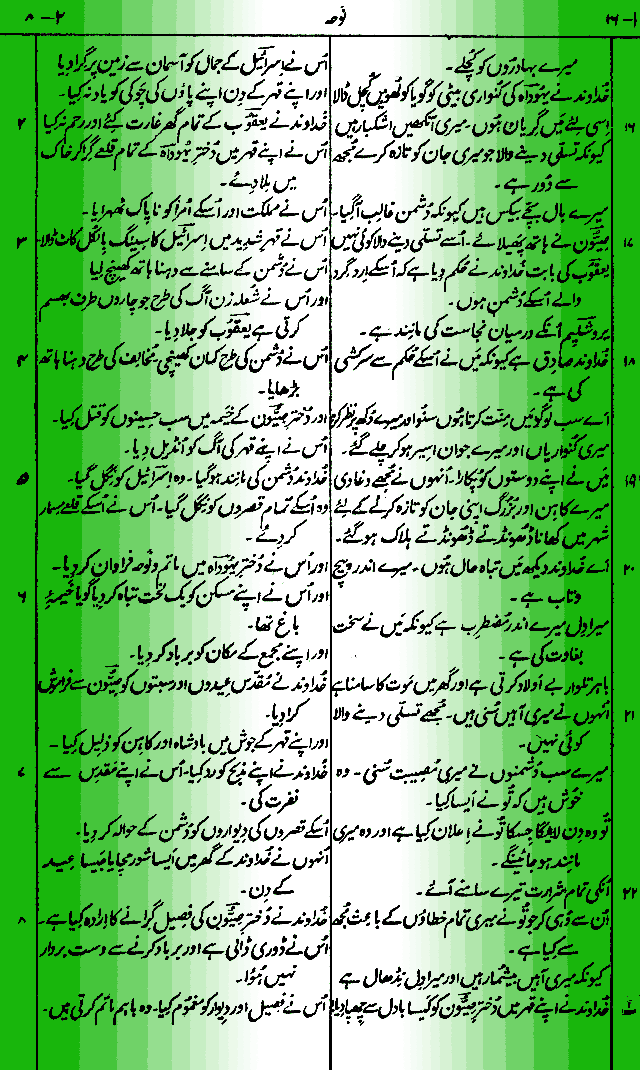 ۱-۱۶
نَوحہ
۲-۸
میرے بہادروں کو کُچلے۔
خُداوند نے یہُوداہ کی کُنواری بیٹی کو گویا کولُھو میں کُچل ڈالا
۱۶ اِسی لِئے مَیں گِریان ہُوں۔ میری آنکھیں اشکبار ہیں
کیونکہ تسلّی دینے والا جو میری جان کو تازہ کرے مُجھ
سے دُور ہے۔
میرے بال بچّے بیکس ہیں کیونکہ دُشمن غالب آ گیا۔
۱۷ صِیّون نے ہاتھ پَھیلائے۔ اُسے تسلّی دینے والا کوئی نہیں
یعقُوب کی بابت خُداوند نے حُکم دیا ہے کہ اُسکے اِردگِرد
والے اُسکے دُشمن ہوں۔
یروشلیِم اُنکے درمیان نجاست کی مانِند ہے۔
۱۸ خُداوند صادِق ہے کیونکہ مَیں نے اُسکے حُکم سے سرکشی
کی ہے۔
اَے سب لوگو مَیں مِنّت کرتا ہوں سُنو اور میرے دُکھ پر نظر کرو
میری کُنواریاں اور میرے جوان اسِیر ہو کر چلے گئے۔
۱۹ مَیں نے اپنے دوستوں کو پُکارا۔ اُنہوں نے مُجھے دغا دی
میرے کاہِن اور بزُرگ اپنی جان کو تازہ کرنے کے لئے
شہر میں کھانا ڈُھونڈتے ڈُھونڈتے ہلاک ہو گئے۔
۲۰ اَے خُداوند دیکھ مَیں تباہ حال ہُوں۔ میرے اندر پیچ
وتاب ہے۔
میرا دِل میرے اندر مُضطرِب ہے کیونکہ مَیں نے سخت
بغاوت کی ہے۔
باہر تلوار بے اَولاد کرتی ہے اور گھر میں مَوت کا سامنا ہے
۲۱ اُنہوں نے میری آہیں سُنی ہیں۔ مُجھے تسلّی دینے والا
کوئی نہیں۔
میرے سب دُشمنوں نے میری مُصیبت سُنی۔ وہ
خُوش ہیں کہ تُو نے اَیسا کیا۔
تُو وہ دِن لائیگا جِسکا تُو نے اِعلان کیا ہے اور وہ میری
مانِند ہو جائینگے۔
۲۲ اُنکی تمام شرارت تیرے سامنے آئے۔
اُن سے وُہی کر جو تُو نے میری تمام خطاؤں کے باعِث مُجھ
سے کِیا ہے۔
کیونکہ میری آہیں بیشُمار ہیں اور میرا دِل نِڈھال ہے
خُداوند نے اپنے قہر میں دُخترِ صِیّون کو کَیسا بادل سے چُھپا دیا!
اُس نے اِسرائیل کے جمال کو آسمان سے زمین پر گرا دیا
اور اپنے قہر کے دِن اپنے پاؤں کی چَوکی کو یاد نہ کیا۔
۲ خُداوند نے یعقُوب کے تمام گھر غارت کِئے اور رحم نہ کیا
اُس نے اپنے قہر میں دُخترِ یہُوداہ کے تمام قلعے گرا کر خاک
میں مِلا دِئے۔
اُس نے مملکت اور اُسکے اُمرا کو ناپاک ٹھہرایا۔
۳ اُس نے قہرِ شدید میں اِسرائیل کا سِینگ بِالکُل کاٹ ڈالا۔
اُس نے دُشمن کے سامنے سے دہنا ہاتھ کھینچ لیا
اور اُس نے شُعلہ زن آگ کی طرح جو چاروں طرف بھسم
کرتی ہے یعقُوب کو جلا دیا۔
۴ اُس نے دُشمن کی طرح کمان کھینچی مُخالِف کی طرح دہنا ہاتھ
بڑھایا۔
اور دُخترِ صِیّون کے خَیمہ میں سب حسِینوں کو قتل کیا۔
اُس نے اپنے قہر کی آگ کو اُنڈیل دیا۔
۵ خُداوند دُشمن کی مانِند ہو گیا۔ وہ اِسرائیل کو نِگل گیا۔
وہ اُسکے تمام قصروں کو نِگل گیا۔ اُس نے اُسکے قلعے مسمار
کر دِئے۔
اور اُس نے دُخترِ یہُوداہ میں ماتم ونَوحہ فراوان کر دیا۔
۶ اور اُس نے اپنے مسکن کو یک لخت تباہ کر دیا گویا خَیمۂ
باغ تھا۔
اور اپنے مجمع کے مکان کو برباد کر دیا۔
خُداوند نے مُقدّس عِیدوں اور سبتوں کو صِیّون سے فراموش
کرا دیا۔
اور اپنے قہر کے جوش میں بادشاہ اور کاہِن کو ذلیل کیا۔
۷ خُداوند نے اپنے مذبح کو رد کیا۔ اُس نے اپنے مَقدِس سے
نفرت کی۔
اُسکے قصروں کی دیواروں کو دُشمن کے حوالہ کر دیا۔
اُنہوں نے خُداوند کے گھر میں اَیسا شور مچایا جَیسا عِید
کے دِن۔
۸ خُداوند نے دُخترِ صِیّون کی فصیل گرانے کا اِرادہ کیا ہے۔
اُس نے ڈوری ڈالی ہے اور برباد کرنے سے دست بردار
نہیں ہُؤا۔
اُس نے فصیل اور دیوار کو مغمُوم کیا۔ وہ باہم ماتم کرتی ہیں۔